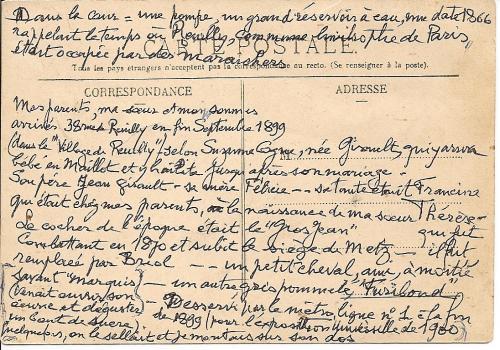 Dans la cour = une pompe, un grand réservoir à eau, une date 1866
rappelant le temps où Reuilly, commune limitrophe de Paris
CARTE POSTALE
était occupée par des maraîchers
Tous les pays étrangers n'acceptent pas la correspondance au recto. (Se renseigner à la poste).
CORRESPONDANCE
ADRESSE
Mes parents, ma sœur et moi sommes
arrivés 38 rue de Reuilly en fin Septembre 1899
(dans le "Village de Reuilly") selon Suzanne Cogne, née Girault, qui y arriva
bébé en Maillot et y habita jusqu'après son mariage -
M
Son père Jean Girault - sa mère Félicie - sa tante était Francine
qui était chez mes parents, à la naissance de ma sœur Thérèse -
Le cocher de l'époque était le "Gros Jean" qui fut
Combattant en 1870 et subit le siège de Metz - il fut
remplacé par - un petit cheval, à moitié
savant "Marquis" - un autre gris pommelé "Furibond"
(venait ouvrir son
œuvre et déguster - Desservi par le metro, ligne n° 1 à la fin
un bout de sucre) de 1899 (pour l'exposition universelle de 1900
quelquefois, on le sellait et je montais sur son dos